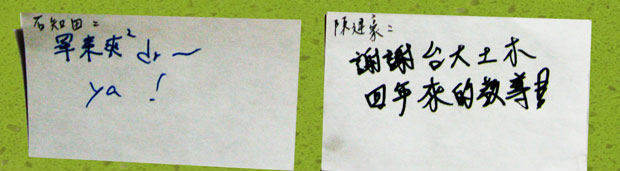 石知田：
畢來爽² dr～
ya !
陳建豪：
謝謝台大土木
四年來的教導!!